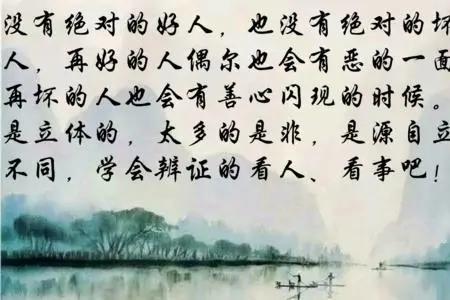 没有绝对的好人，也没有绝对的坏
人，再好的人偶尔也会有恶的一面
再坏的人也会有善心闪现的时候。
是立体的，太多的是非，是源自立
不同，学会辨证的看人、看事吧！